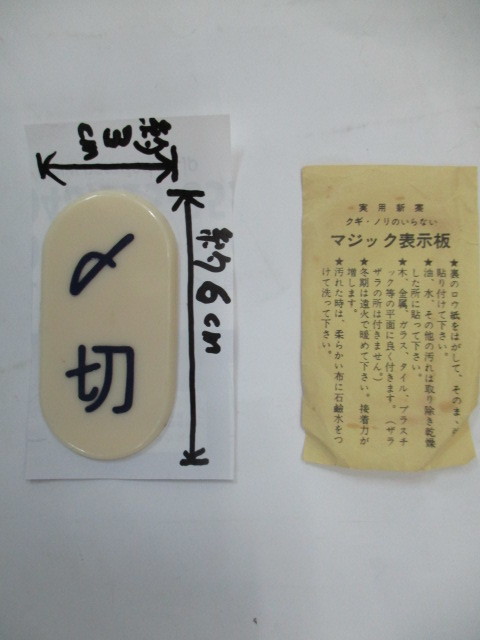 約3cm
約6cm
〆切
実用新案
クギ・ノリのいらない
マジック表示板
★裏のロウ紙をはがして、そのまゝ
貼り付けて下さい。
★油、水、その他の汚れは取り除き乾燥
した所に貼って下さい。
★木、金属、ガラス、タイル、プラスチ
ック等の平面に良く付きます。(ザラ
ザラの所は付きません。)
★冬期は遠火で暖めて下さい。接着力が
増します。
★汚れた時は、柔らかい布に石鹼水をつ
けて洗って下さい。